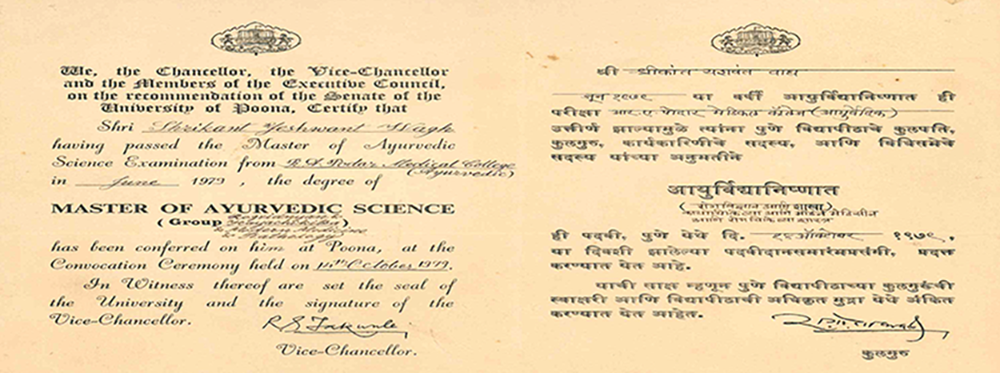 We, the Chancellor, the Vice-Chancellor
and the Members of the Executive Council,
on the recommendation of the Senate of the
University of Poona, Certify that
Shri Shrikant Yeshwant Wagh
having passed the Master of Ayurvedic
Science Examination from R. A. Podar Medical College
(Ayurvedic)
in June 1979, the degree of
MASTER OF AYURVEDIC SCIENCE
(Group
& Modern Medicine
has been conferred on him at Poona, at the
Convocation Ceremony held on October 1979.
In Witness thereof are set the seal of
the University and the signature of the
Vice-Chancellor.
Vice-Chancellor.
श्री श्रीकांत यशवंत वाघ
जून १९७९ या वर्षी आयुर्विद्यानिष्णात ही
परीक्षा आर. ए. पोदार मेडिकल कॉलेज (आयुर्वेदिक)
उत्तीर्ण झाल्यामुळे त्यांना पुणे विद्यापीठाचे कुलपति,
कुलगुरु, कार्यकारिणीचे सदस्य, आणि विधिसभेचे
सदस्य यांच्या अनुमतीने
आयुर्विद्यानिष्णात
आणि
ही पदवी, पुणे येथे दि. ऑक्टोबर १९७९,
या दिवशी झालेल्या पदवीदानसमारंभप्रसंगी, प्रदत्त
करण्यात येत आहे.
याची साक्ष म्हणून पुणे विद्यापीठाच्या कुलगुरूंची
स्वाक्षरी आणि विद्यापीठाची अधिकृत मुद्रा येथे अंकित
करण्यात येत आहेत.
कुलगुरु